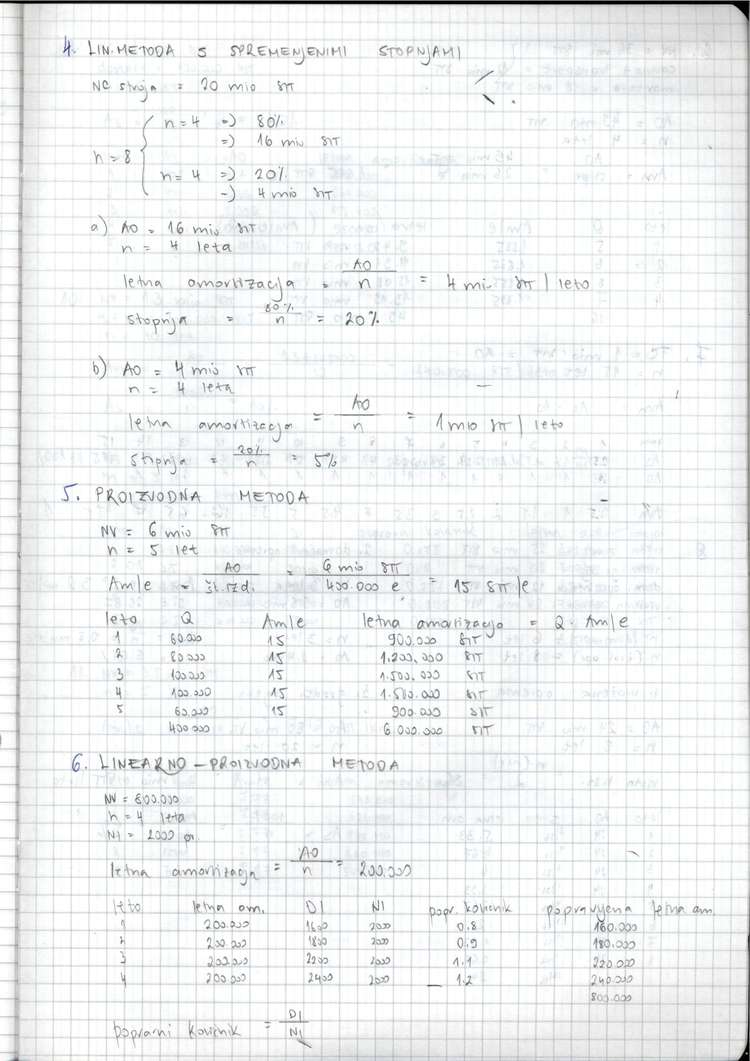 4. LIN. METODA S SPREMENJENIMI STOPNJAMI
NC stroja = 20 mio SIT
n = 8
n = 4 => 80%
=> 16 mio SIT
n = 4 => 20%
-) 4 mio SIT
a) AO = 16 mio SIT
n = 4 leta
letna amortizacija = AO / n = 4 mi- SIT | leto
stopnja = 80% / n = 20%
b) AO = 4 mio SIT
n = 4 leta
letna amortizacija = AO / n = 1 mio SIT | leto
stopnja = 20% / n = 5%
5. PROIZVODNA METODA
NV = 6 mio SIT
n = 5 let
Am/e = AO / št. izd. = 6 mio SIT / 400.000 e = 15 SIT/e
leto Q Am/e letna amortizacija = Q · Am/e
1 60.000 15 900.000 SIT
2 80.000 15 1.200.000 SIT
3 100.000 15 1.500.000 SIT
4 100.000 15 1.500.000 SIT
5 60.000 15 900.000 SIT
400.000 6.000.000 SIT
6. LINEARNO – PROIZVODNA METODA
NV = 800.000
n = 4 leta
NI = 2000
letna amortizacija = AO / n = 200.000
leto letna am. DI NI popr. količnik popravljena letna am.
1 200.000 1600 2000 0.8 160.000
2 200.000 1800 2000 0.9 180.000
3 200.000 2200 2000 1.1 220.000
4 200.000 2400 2000 1.2 240.000
800.000
popravni količnik = DI / NI